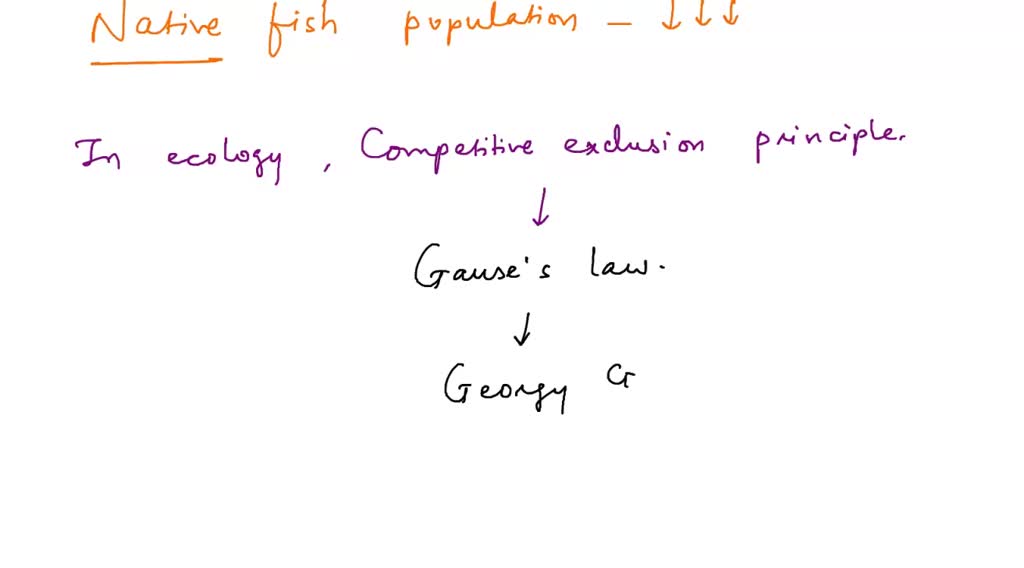 Native fish population - ↓ ↓ ↓
In ecology, Competitive exclusion principle.
↓
Gause's law.
↓
Georgy G